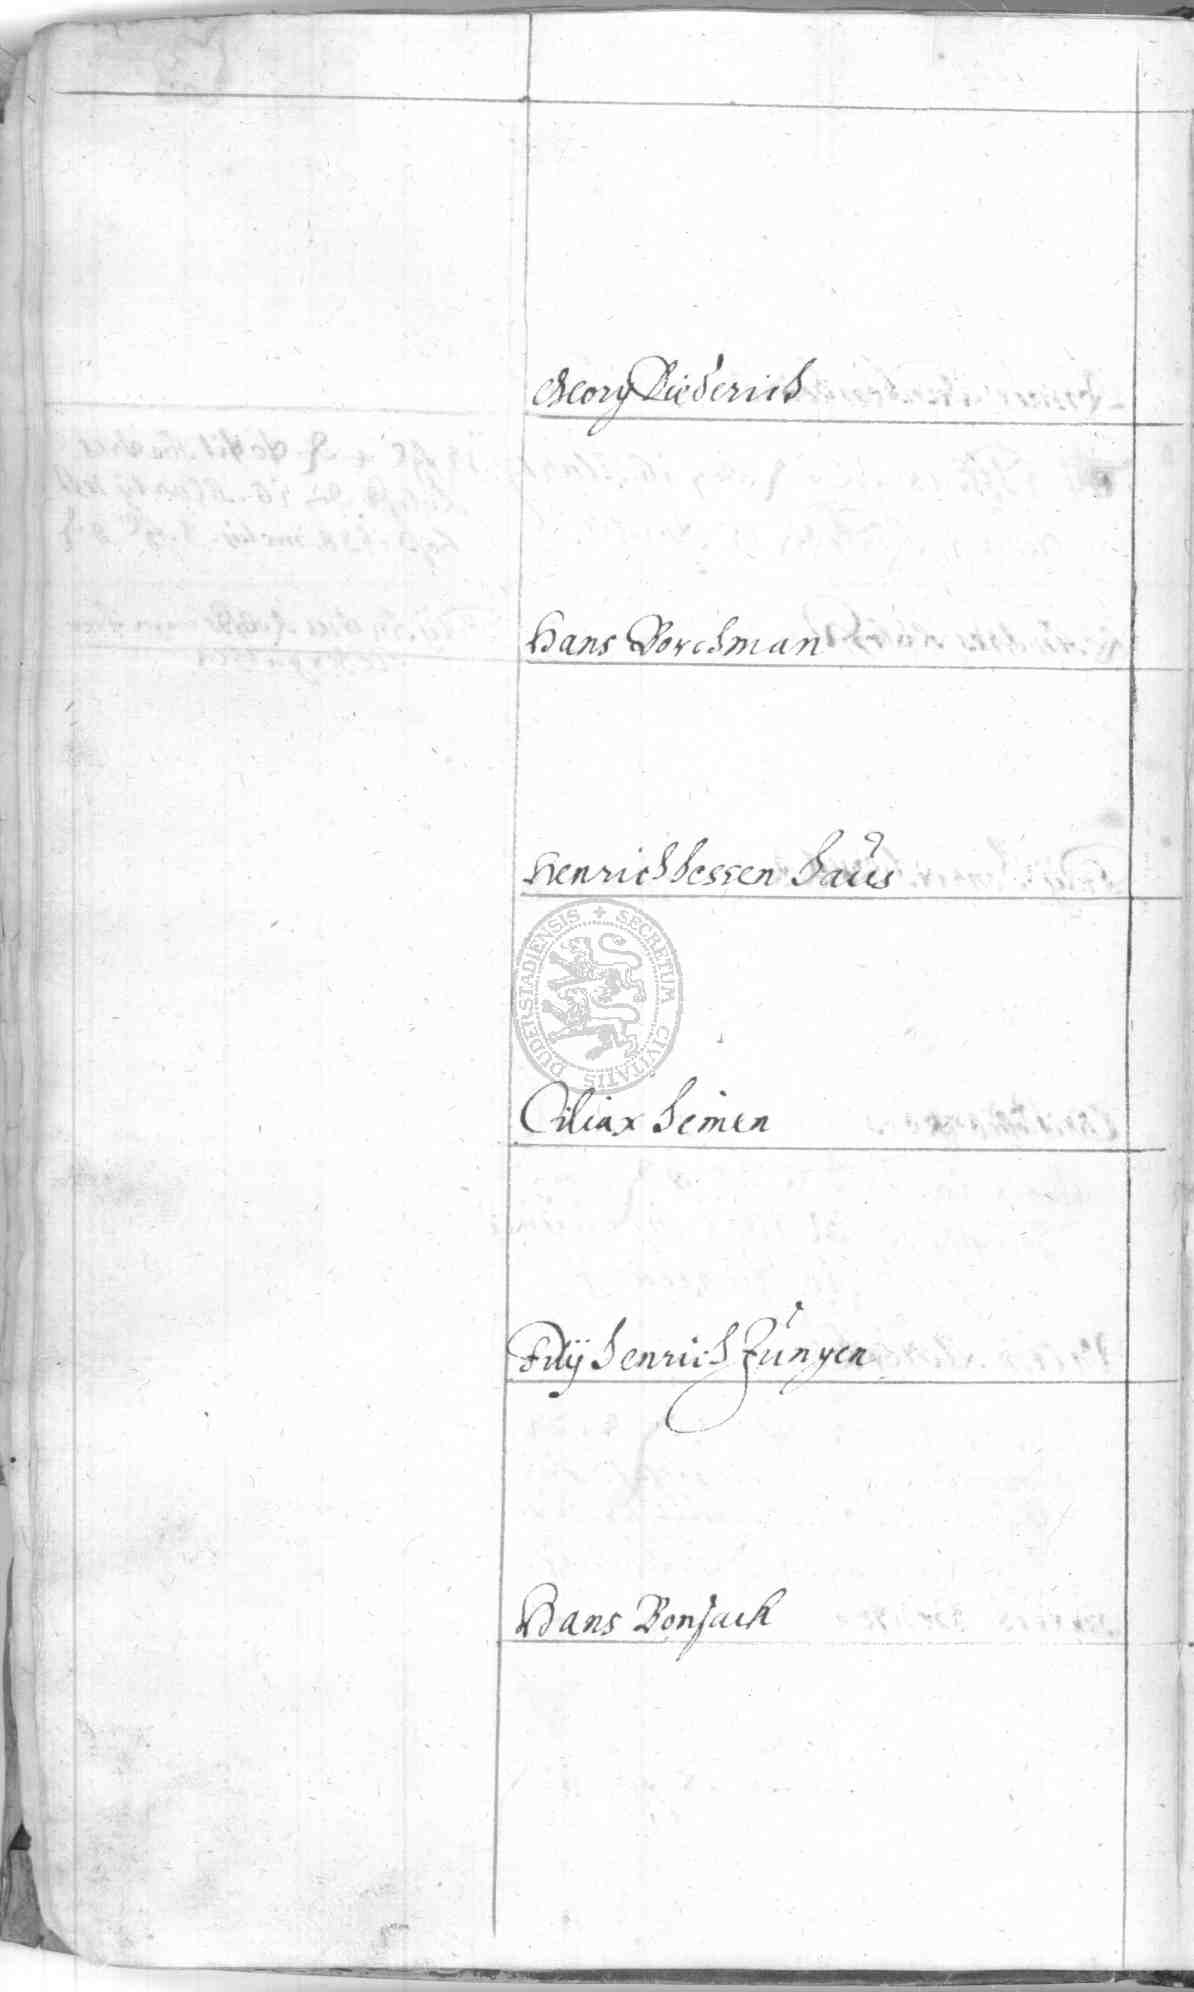 Georg Diederich
Hans Borchman
Henrich hessen haus
DUDERSTADIENSIS + SECRETUM CIVITATIS
Ciliax heinen
Filÿ henrich Jungen
Hans Bonsack